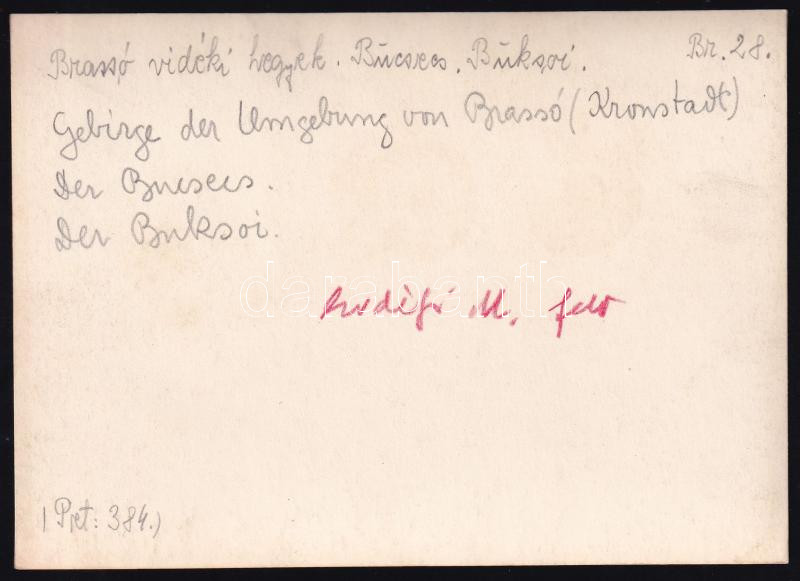 Brassó vidéki hegyek. Bucsecs. Buksoi. Br. 28.
Gebirge der Umgebung von Brassó (Kronstadt)
Der Bucsecs.
Der Buksoi.
darabanth
M. felv
(Pct: 384.)